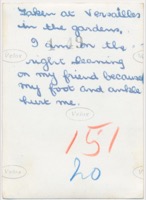 Taken at Versailles
in the gardens,
I am on the
right leaning
on my friend because
my foot and ankle
hurt me.
151
20
Velox